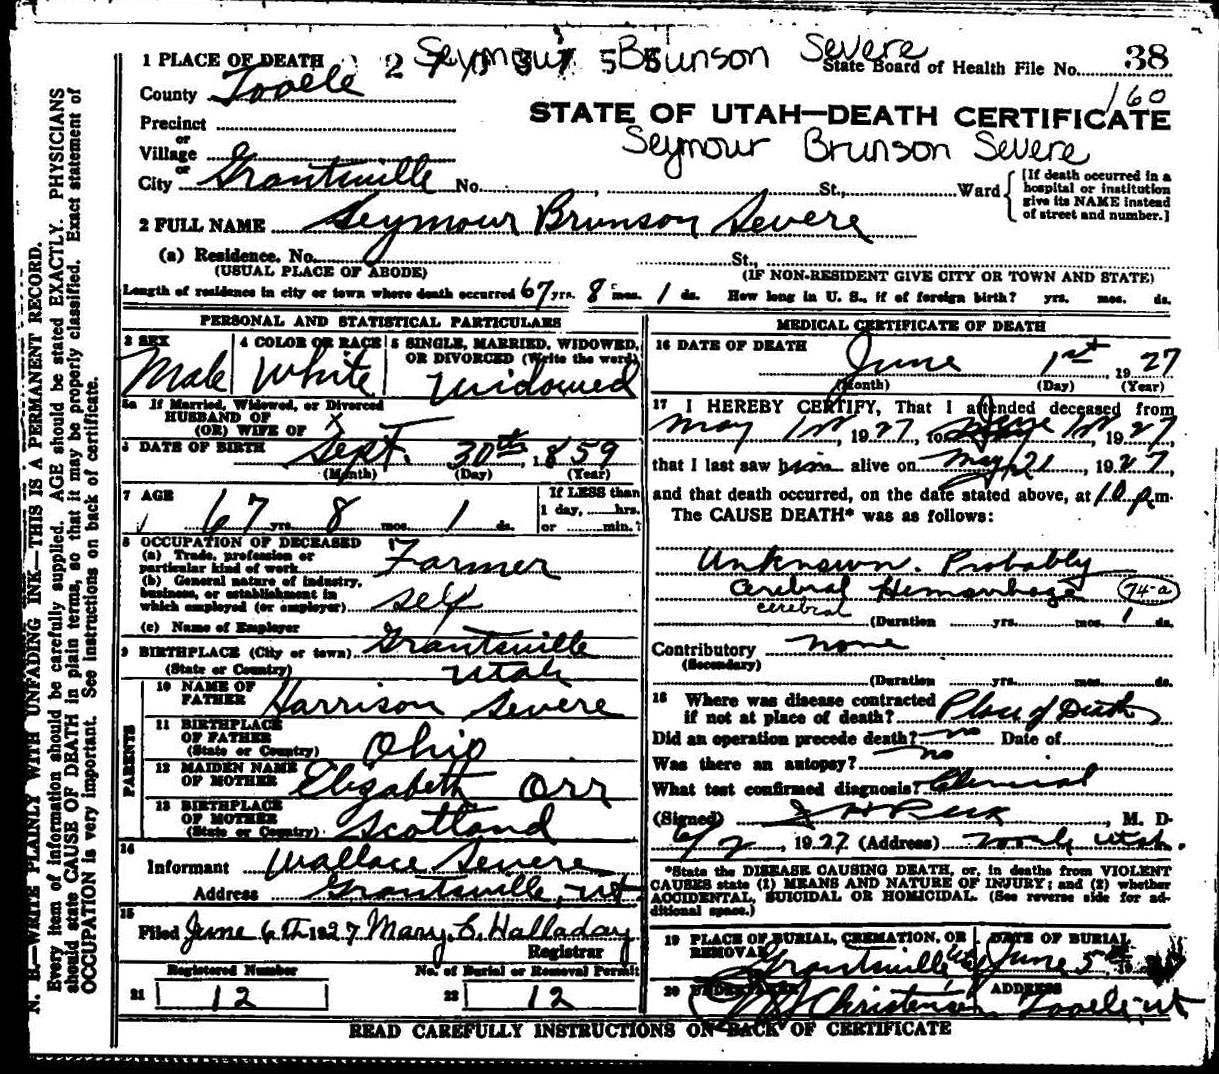 1 PLACE OF DEATH
Seymour Brunson Severe
State Board of Health File No. 38
160
County Tooele
STATE OF UTAH—DEATH CERTIFICATE
Precinct
or
Village
Seymour Brunson Severe
or
City Grantsville No. , St., Ward
[If death occurred in a hospital or institution give its NAME instead of street and number.]
2 FULL NAME Seymour Brunson Severe
(a) Residence. No. St.,
(USUAL PLACE OF ABODE) (IF NON-RESIDENT GIVE CITY OR TOWN AND STATE)
Length of residence in city or town where death occurred 67 yrs. 8 mos. 1 ds. How long in U. S., if of foreign birth? yrs. mos. ds.
PERSONAL AND STATISTICAL PARTICULARS
3 SEX Male
4 COLOR OR RACE White
5 SINGLE, MARRIED, WIDOWED, OR DIVORCED (Write the word) Widowed
5a If Married, Widowed, or Divorced
HUSBAND OF
(OR) WIFE OF X
6 DATE OF BIRTH Sept. 30th, 1859
(Month) (Day) (Year)
7 AGE 67 yrs. 8 mos. 1 ds.
If LESS than 1 day, hrs. or min.?
8 OCCUPATION OF DECEASED
(a) Trade, profession or particular kind of work Farmer
(b) General nature of industry, business, or establishment in which employed (or employer) self
(c) Name of Employer
9 BIRTHPLACE (City or town) Grantsville
(State or Country) Utah
PARENTS
10 NAME OF FATHER Harrison Severe
11 BIRTHPLACE OF FATHER (State or Country) Ohio
12 MAIDEN NAME OF MOTHER Elizabeth Orr
13 BIRTHPLACE OF MOTHER (State or Country) Scotland
14
Informant Wallace Severe
Address Grantsville, Ut
15
Filed June 6th 1927 Mary E. Halladay
Registrar
Registered Number No. of Burial or Removal Permit
21 12 22 12
MEDICAL CERTIFICATE OF DEATH
16 DATE OF DEATH June 1st, 1927
(Month) (Day) (Year)
17 I HEREBY CERTIFY, That I attended deceased from
May 1st, 1927, to 1st, 1927
that I last saw him alive on May 21, 1927,
and that death occurred, on the date stated above, at 10 p m.
The CAUSE DEATH* was as follows:
Unknown. Probably
Cerebral Hemorrhage 74-a
cerebral
(Duration yrs. mos. 1 ds.
Contributory none
(Secondary)
(Duration yrs. mos. ds.
18 Where was disease contracted
if not at place of death? Place of Death
Did an operation precede death? no Date of
Was there an autopsy? no
What test confirmed diagnosis? Clinical
(Signed) J H Peck, M. D.
6/2, 1927 (Address) Tooele Utah.
*State the DISEASE CAUSING DEATH, or, in deaths from VIOLENT CAUSES state (1) MEANS AND NATURE OF INJURY; and (2) whether ACCIDENTAL, SUICIDAL OR HOMICIDAL. (See reverse side for additional space.)
19 PLACE OF BURIAL, CREMATION, OR REMOVAL Grantsville
DATE OF BURIAL June 5th
20 UNDERTAKER Christensen
ADDRESS Tooele, ut
READ CAREFULLY INSTRUCTIONS ON BACK OF CERTIFICATE
N. B.—WRITE PLAINLY WITH UNFADING INK—THIS IS A PERMANENT RECORD.
Every item of information should be carefully supplied. AGE should be stated EXACTLY. PHYSICIANS
should state CAUSE OF DEATH in plain terms, so that it may be properly classified. Exact statement of
OCCUPATION is very important. See instructions on back of certificate.